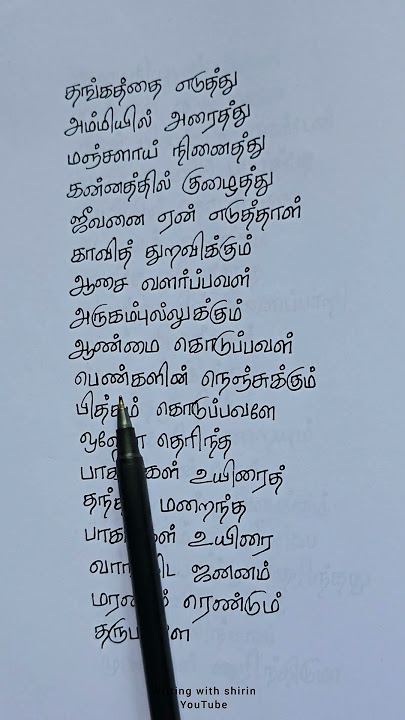 தங்கத்தை எடுத்து
அம்மியில் அரைத்து
மஞ்சளாய் நினைத்து
கன்னத்தில் குழைத்து
ஜீவனை ஏன் எடுத்தாள்
காவித் துறவிக்கும்
ஆசை வளர்ப்பவள்
அருகம்புல்லுக்கும்
ஆண்மை கொடுப்பவள்
பெண்களின் நெஞ்சுக்கும்
பித்தம் கொடுப்பவளே
தெரிந்த
உயிரைத்
மறைந்த
உயிரை
ஜனனம்
ரெண்டும்
Writing with shirin
YouTube